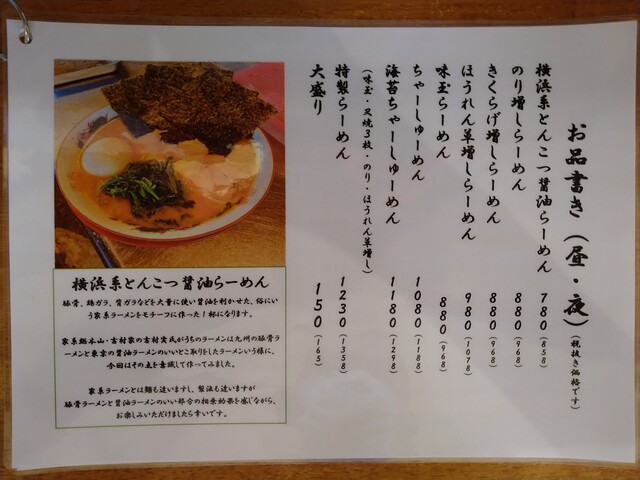 お品書き（昼・夜）（税抜き価格です）
横浜系とんこつ醤油らーめん 780（858）
のり増しらーめん 880（968）
きくらげ増しらーめん 880（968）
ほうれん草増しらーめん 980（1078）
味玉らーめん 880（968）
ちゃーしゅーめん 1080（1188）
海苔ちゃーしゅーめん 1180（1298）
特製らーめん 1230（1358）
（味玉・叉焼3枚・のり・ほうれん草増し）
大盛り 150（165）
横浜系とんこつ醤油らーめん
豚骨、鶏ガラ、背ガラなどを大量に使い醤油を利かせた、俗にい
う家系ラーメンをモチーフに作った1杯になります。
家系総本山・吉村家の吉村実氏がうちのラーメンは九州の豚骨ラ
ーメンと東京の醤油ラーメンのいいとこ取りをしたラーメンいう様に、
今回はその点を意識して作ってみました。
家系ラーメンとは麺も違いますし、製法も違いますが
豚骨ラーメンと醤油ラーメンのいい部分の相乗効果を感じながら、
お楽しみいただけましたら幸いです。